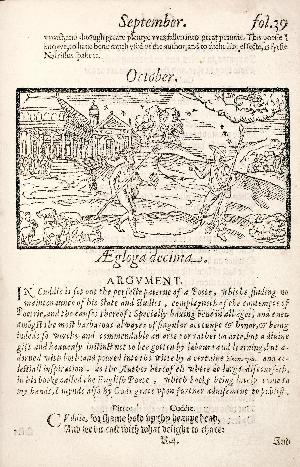 September. fol.39
Narcissus spake it.
October.
Ægloga decima.
ARGVMENT.
IN Cuddie is set out the perfecte paterne of a Poete, whiche finding no
maintenaunce of his state and studies, complayneth of the contempte of
Poetrie, and the causes thereof: Specially hauing bene in all ages, and euen
amongst the most barbarous alwayes of singular accounpt & honor, & being
indede so worthy and commendable an arte: or rather no arte, but a diuine
gift and heauenly instinct not to bee gotten by laboure and learning, but a-
dorned with both: and poured into the witte by a certaine and ce-
lestiall inspiration. as the Author hereof els where at large discourseth,
in his booke called the English Poete, which booke being lately come to
my hands, I mynde also by Gods grace upon further aduisement to publish.
Pierce. Cuddie.
CVddie, for shame hold up thy heauye head,
And let us cast with what delight to chace:
And